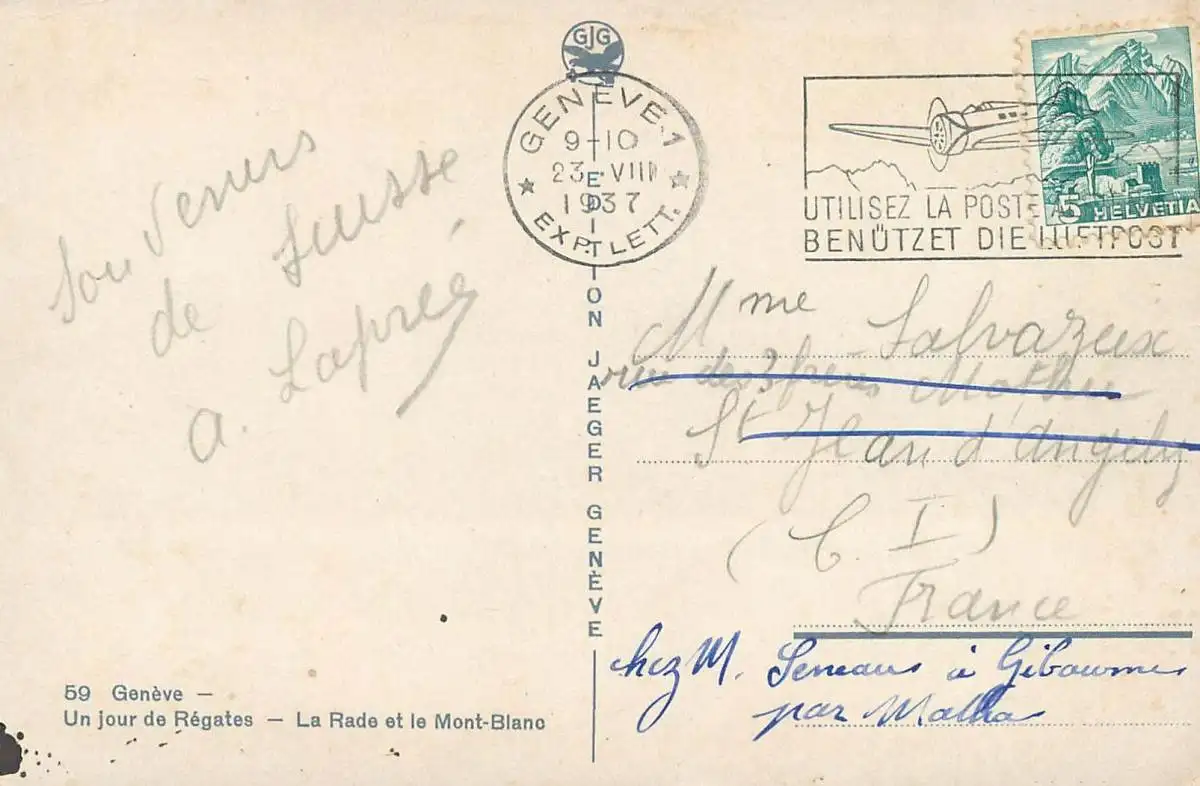 GJG
GENÈVE 1
9-10
23. VIII
1937
EXP. LETT.
UTILISEZ LA POSTE A
BENÜTZET DIE LUFTPOST
5 HELVETIA
Souvenirs
de Suisse
A. Lapreé
EDITION JAEGER GENÈVE
Mme Salvazeux
rue des 3 frères
St Jean d'Angely
(C. I)
France
chez M. à
par Matha
59 Genève –
Un jour de Régates – La Rade et le Mont-Blanc